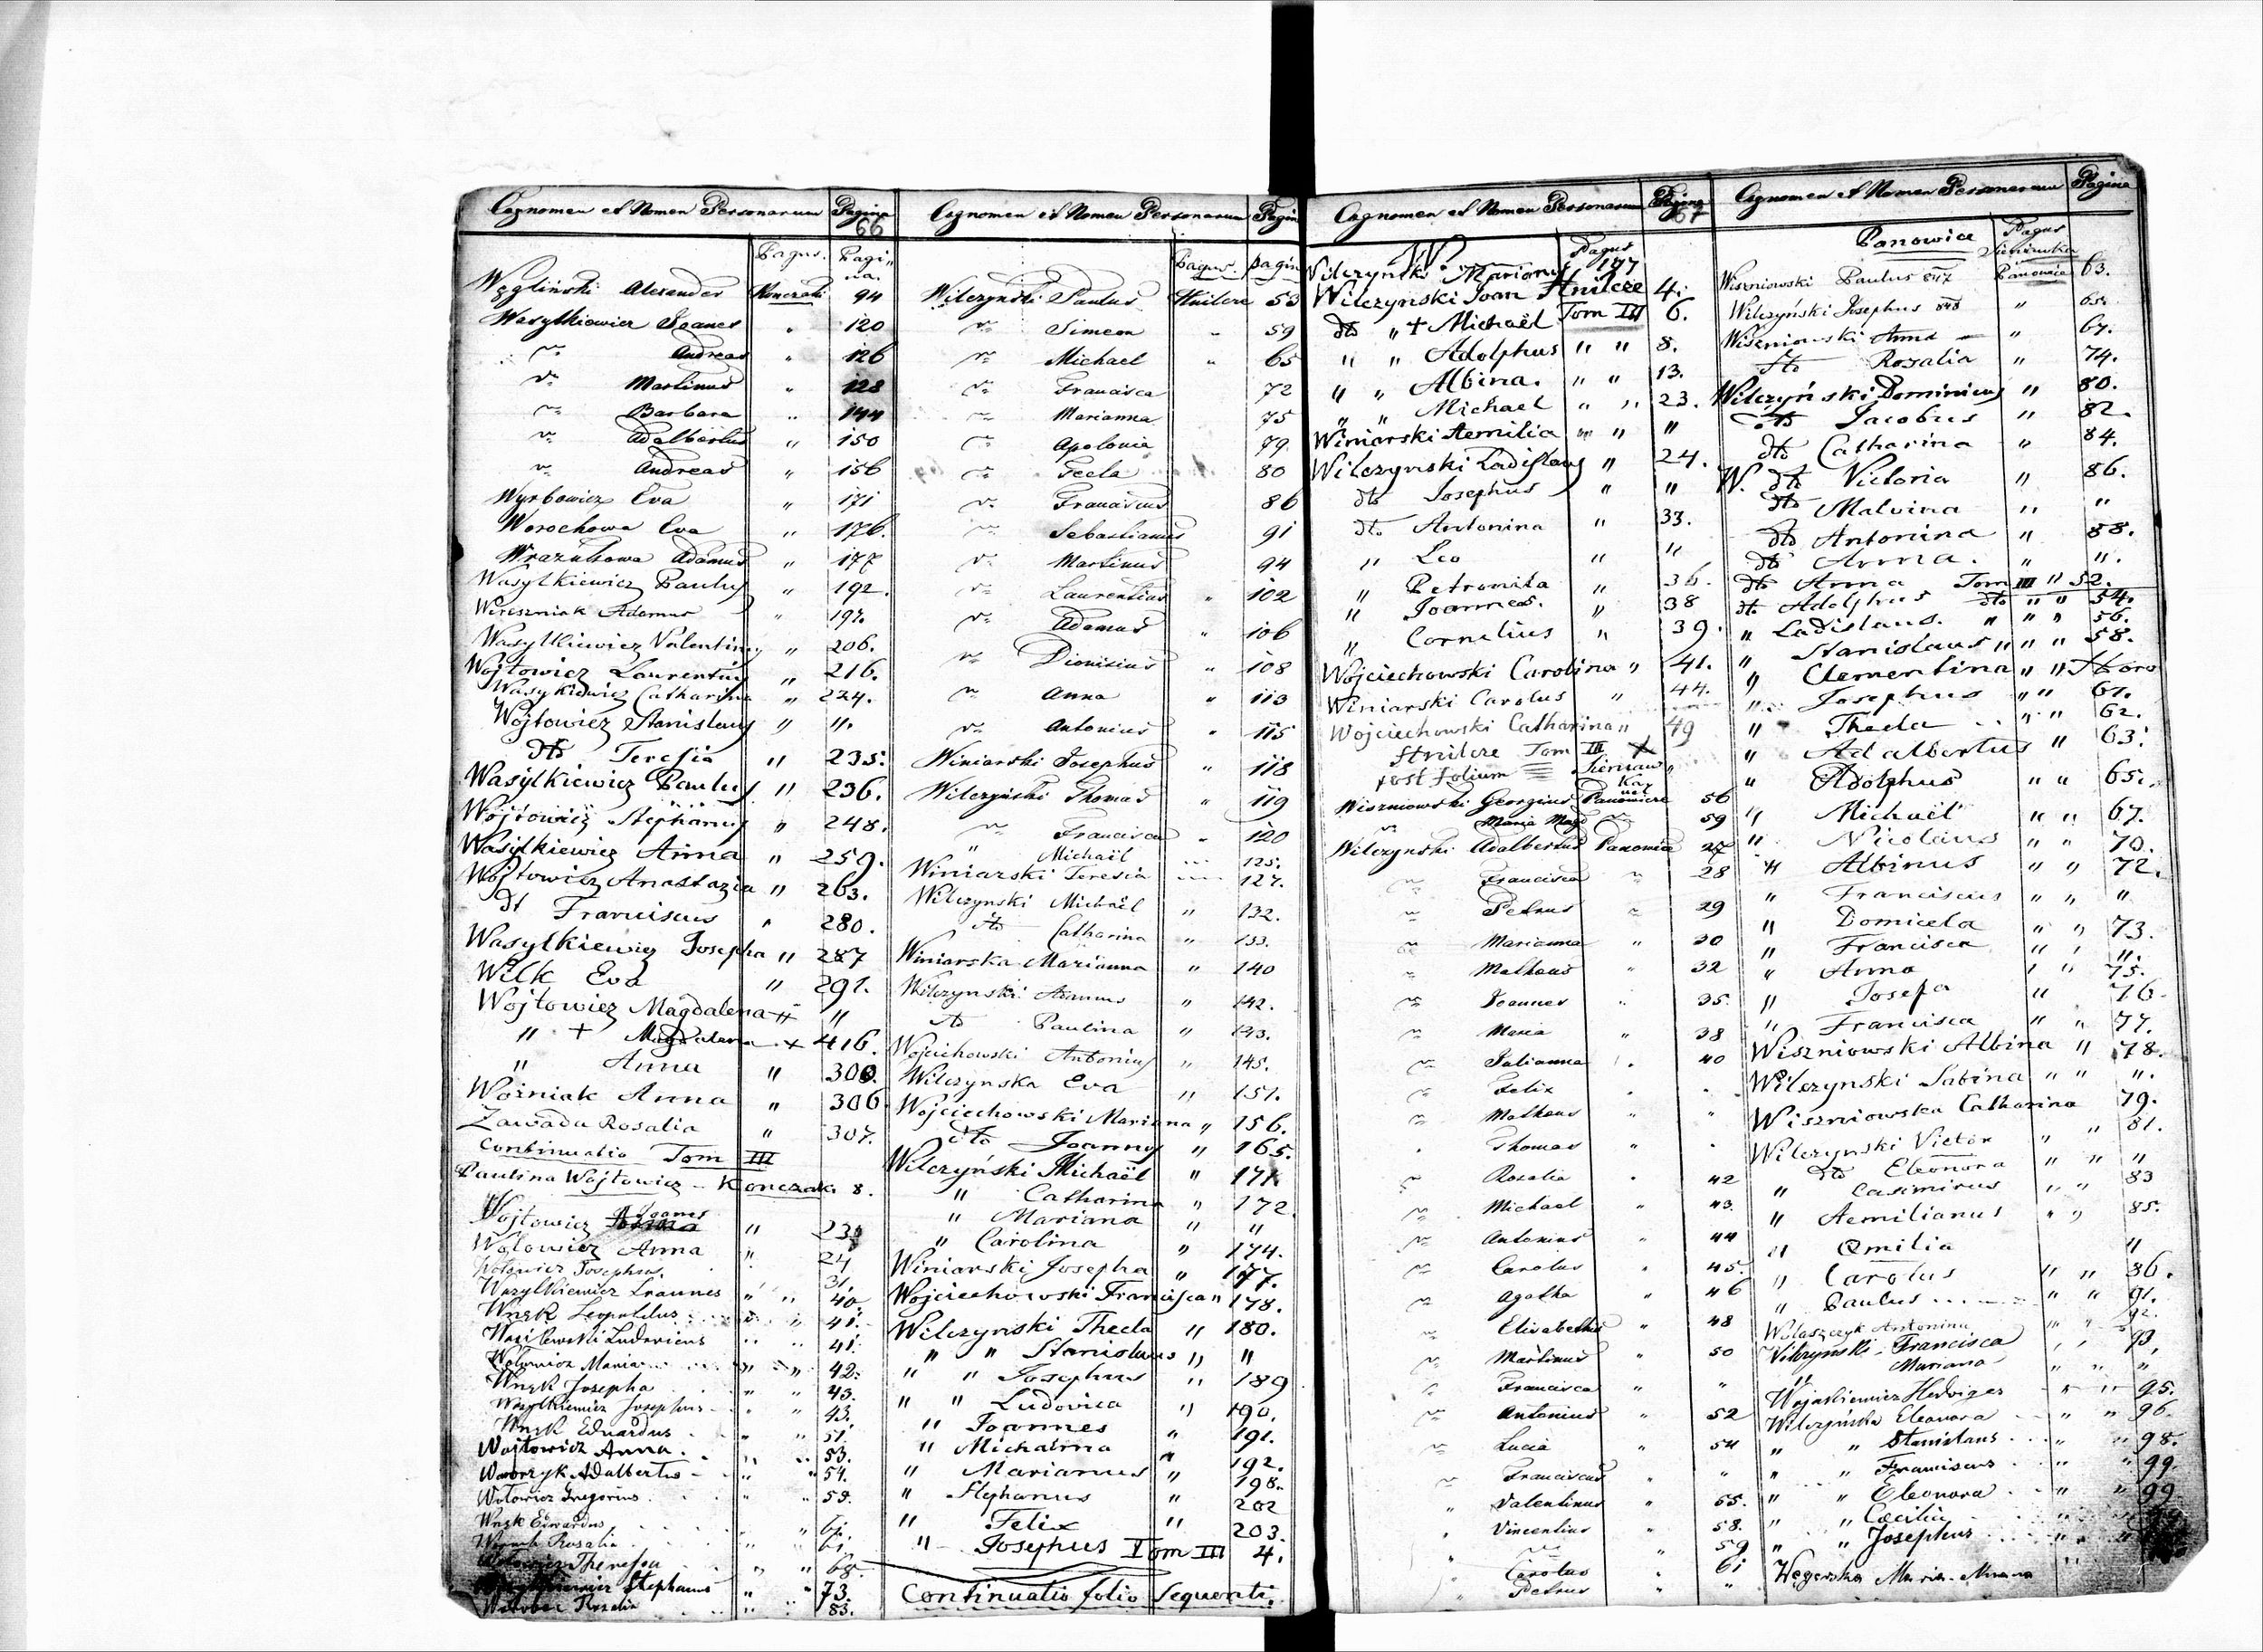 Cognomen et Nomen Personarum Pagina
66
Pagus. Pagina.
Węgliński Alexander Konczaki 94
Wasylkiewicz Joanes " 120
Andreas " 126
Martinus " 128
Barbara " 144
Adalbertus " 150
Andreas " 156
Wyrbowicz Eva " 171
Worochowa Eva " 176.
Adamus " 177
Wasylkiewicz Paulus " 192.
Adamus " 197.
Wasylkiewicz Valentinus " 206.
Wojtowicz Laurentius " 216.
Wasykiewicz Catharina " 224.
Wojtowicz Stanislaus " ".
dto Teresia " 235.
Wasylkiewicz Paulus " 236.
Wojtowicz Stephanus " 248.
Wasylkiewicz Anna " 259.
Wojtowicz Anastazia " 263.
dt Franciscus " 280.
Wasylkiewicz Josepha " 287
Wilk Eva " 291.
Wojtowicz Magdalena " "
" + Magdalena + 416.
" Anna " 300.
Woźniak Anna " 306
Zawada Rosalia " 307.
Continuatio Tom III
Paulina Wojtowicz - Konczak. 8.
Wojtowicz Joanes " 23
Wołowicz Anna " 24
Wołowicz Josephus. " 31.
Wasylkiewicz Joannes " " 40
Wnęk Leopoldus " " 41.
Ludovicus " " 41.
Wołowicz Maria " " 42.
Wnęk Josepha " " 43.
Wasylkiewicz Josephus " " 43.
Wnęk Eduardus " " 51.
Wojtowicz Anna. " " 53.
Adalbertus " " 54.
Wołowicz Gregorius " " 59.
Wnęk Edwardus " "
Rosalia " "
Theresia " " 68.
Stephanus " " 73.
Rosalia " " 83.
Cognomen et Nomen Personarum Pagin
Pagus. pagin
Wilczynski Paulus Hnilcze 53
Simeon " 59
Michael " 65
Francisca 72
Marianna 75
Apolonia 79
Tecla 80
Franciscus 86
Sebastianus 91
Martinus 94
Laurentius " 102
Adamus " 106
Dionisius " 108
Anna " 113
Antonius " 115
Winiarski Josephus " 118
Wilczyński Thomas " 119
Francisca " 120
" Michaël 125.
Winiarski Teresia 127.
Wilczynski Michaël " 132.
dto Catharina " 133.
Winiarska Marianna " 140
Wilczynski " 142.
dto Paulina " 143.
Wojciechowski Antonius " 145.
Wilczynska Eva " 151.
Wojciechowski Mariana " 156.
dto Joannes " 165.
Wilczyński Michaël " 171
" Catharina " 172.
" Mariana " "
" Carolina " 174.
Winiarski Josepha " 177.
Wojciechowski Francisca " 178.
Wilczynski Thecla " 180.
" " Stanislaus " "
" " Josephus " 189
" " Ludovica " 190.
" Joannes " 191.
" Michalina " 192.
" Marianus " 198.
" Stephanus " 202
" Felix " 203.
" Josephus Tom III 4.
Continuatio folio sequenti.
Cognomen et Nomen Personarum Pagina
67
W. Pagus
Wilczynski Marianus 177
Wilczynski Joan Hnilcze 4.
dto " + Michaël Tom III 6.
" " Adolphus " " 8.
" " Albina. " " 13.
" " Michael " " 23.
Winiarski Aemilia " " "
Wilczynski Ladislaus " 24.
dto Josephus " "
dto Antonina " 33.
" Leo " "
" Petronila " 36.
" Joannes. " 38
" Cornelius " 39.
Wojciechowski Carolina " 41.
Winiarski Carolus " 44.
Wojciechowski Catharina " 49
Hnilcze Tom III X
post folium
Wiszniowski Georgius Panowice 56
Maria Magd 59
Wilczynski Adalbertus Panowice 27
Francisca 28
Petrus 29
Marianna " 30
Matheus " 32
Joannes 35.
Maria " 38
Julianna 40
Felix
Matheus " "
Thomas "
Rosalia 42
Michael " 43.
Antonius " 44
Carolus 45.
Agatha " 46
Elisabetha " 48
Martinus " 50
Francisca " "
Antonius " 52
Lucia " 54
Franciscus " "
" Valentinus " 55.
Vincentius " 58.
" 59
Carolus " 61
Petrus " "
Cognomen et Nomen Personarum Pagina
Panowice Pagus
Panowice
Wiszniowski Paulus 847 63.
Wilczyński Josephus 848 " 65.
Wiszniowski Anna " 67.
dto Rozalia " 74.
Wilczyński Dominicus " 80.
dto Jacobus " 82.
dto Catharina " 84.
W. dto Victoria " 86.
dto Malvina " "
dto Antonina " 88.
dto Anna. " ".
dto Anna Tom III " 52.
dt Adolphus dto " " 54.
" Ladislaus. " " " 56.
" Stanislaus " " " 58.
" Clementina " "
" Josephus " " 61.
" Thecla " " 62.
" Adalbertus " 63.
" Adolphus " " 65.
" Michaël " " 67.
" Nicolaus " " 70.
" Albinus " " 72.
" Franciscus " " "
" Domicela " " 73.
" Francisca " " ".
" Anna " " 75.
" Josefa " 76.
" Francisca " " 77.
Wiszniowski Albina " 78.
Wilczynski Sabina " " ".
Wiszniowska Catharina 79.
Wilczynski Victor " " 81.
dto Eleonora " " "
" Casimirus " " 83
" Aemilianus " " 85.
" Emilia "
" Carolus " " 86.
" Paulus " " 91.
Antonina " " 92.
Wilczynski Francisca " " 93.
" Mariana " " "
Hedviges " " 95.
Wilczyńska Eleonora " " 96.
" " Stanislaus " " 98.
" " Franciscus " " 99.
" " Eleonora " " 99
" " Cecilia
" " Josephus " "
Węgerska Maria